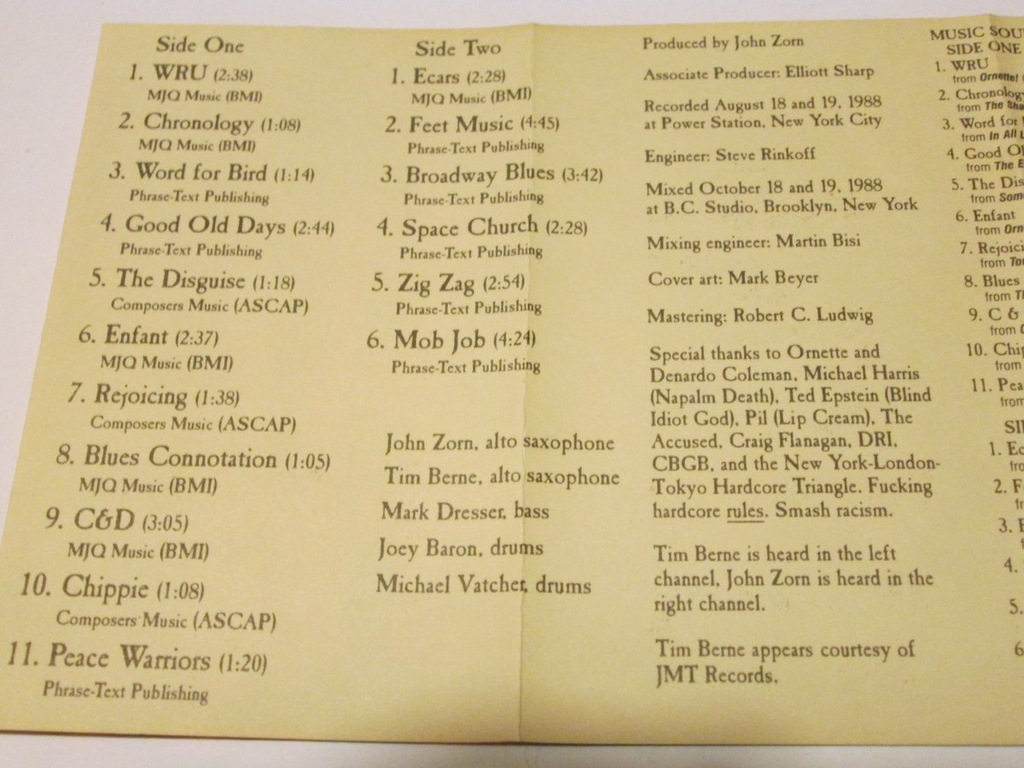 Side One
1. WRU (2:38)
MJQ Music (BMI)
2. Chronology (1:08)
MJQ Music (BMI)
3. Word for Bird (1:14)
Phrase-Text Publishing
4. Good Old Days (2:44)
Phrase-Text Publishing
5. The Disguise (1:18)
Composers Music (ASCAP)
6. Enfant (2:37)
MJQ Music (BMI)
7. Rejoicing (1:38)
Composers Music (ASCAP)
8. Blues Connotation (1:05)
MJQ Music (BMI)
9. C&D (3:05)
MJQ Music (BMI)
10. Chippie (1:08)
Composers Music (ASCAP)
11. Peace Warriors (1:20)
Phrase-Text Publishing
Side Two
1. Ecars (2:28)
MJQ Music (BMI)
2. Feet Music (4:45)
Phrase-Text Publishing
3. Broadway Blues (3:42)
Phrase-Text Publishing
4. Space Church (2:28)
Phrase-Text Publishing
5. Zig Zag (2:54)
Phrase-Text Publishing
6. Mob Job (4:24)
Phrase-Text Publishing
John Zorn, alto saxophone
Tim Berne, alto saxophone
Mark Dresser, bass
Joey Baron, drums
Michael Vatcher, drums
Produced by John Zorn
Associate Producer: Elliott Sharp
Recorded August 18 and 19, 1988
at Power Station, New York City
Engineer: Steve Rinkoff
Mixed October 18 and 19, 1988
at B.C. Studio, Brooklyn, New York
Mixing engineer: Martin Bisi
Cover art: Mark Beyer
Mastering: Robert C. Ludwig
Special thanks to Ornette and
Denardo Coleman, Michael Harris
(Napalm Death), Ted Epstein (Blind
Idiot God), Pil (Lip Cream), The
Accused, Craig Flanagan, DRI,
CBGB, and the New York-London-
Tokyo Hardcore Triangle. Fucking
hardcore rules. Smash racism.
Tim Berne is heard in the left
channel, John Zorn is heard in the
right channel.
Tim Berne appears courtesy of
JMT Records.
MUSIC SOU
SIDE ONE
1. WRU
from Ornette!
2. Chronology
from The Sha
3. Word for
from In All L
4. Good Ol
from The E
5. The Dis
from Som
6. Enfant
from Orn
7. Rejoici
from To
8. Blues
from T
9. C &
from
10. Chip
from
11. Pea
from
SI
1. Ec
2. F
3.
4.
5.
6